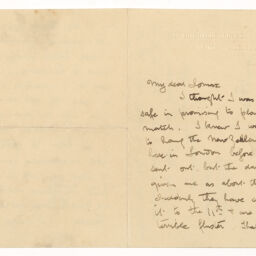 My dear Tomas
I thought I was
safe in promising to play
match. I knew I w
to hang the New
here in London before
sent out but the da
given me as about th
Suddenly they have c
it to the 11th & we are
terrible fluster Tha